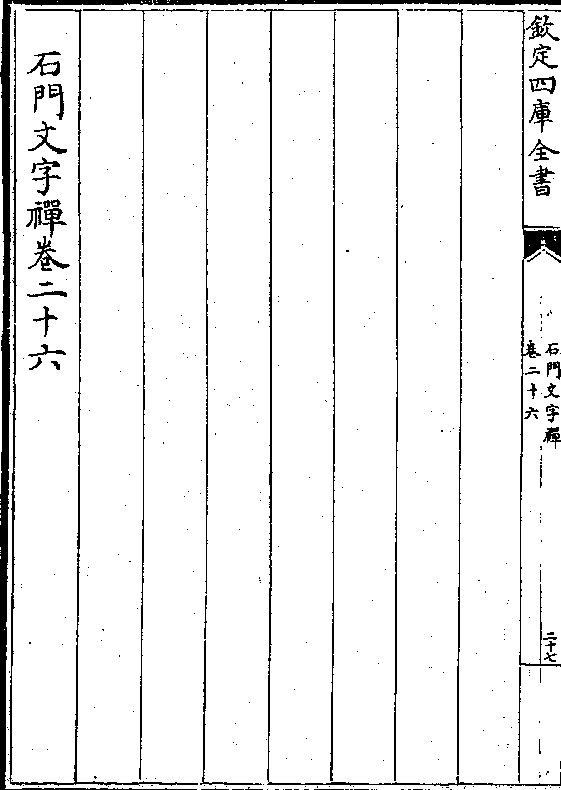 欽定四庫全書
石門文字禪
卷二十六
二十七
石門文字禪卷二十六